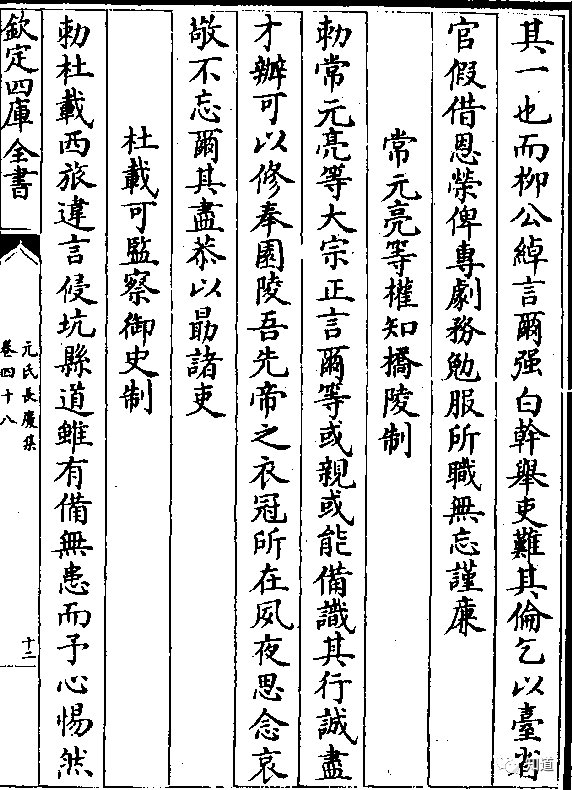 其一也而柳公綽言爾强白幹舉吏難其倫乞以臺省
官假借恩榮俾專劇務勉服所職無忘謹廉
常元亮等權知橋陵制
勅常元亮等大宗正言爾等或親或能備識其行誠盡
才辦可以修奉園陵吾先帝之衣冠所在夙夜思念哀
敬不忘爾其盡恭以勗諸吏
杜載可監察御史制
勅杜載西旅違言侵坑縣道雖有備無患而予心惕然
欽定四庫全書
元氏長慶集
卷四十八
十二
道